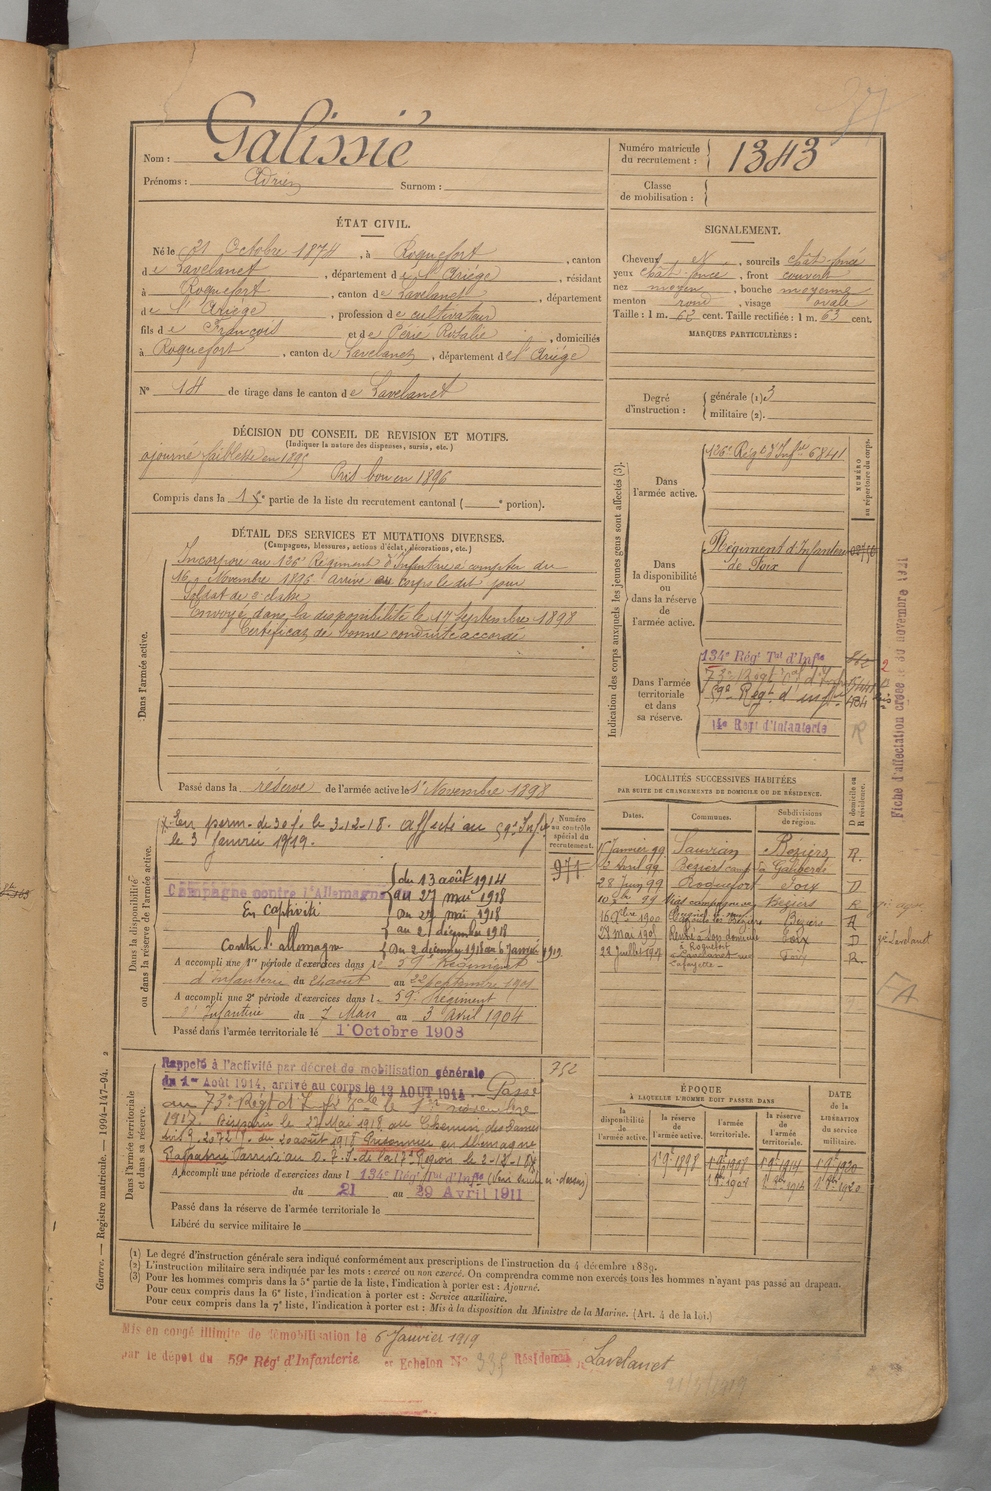 77
Nom : Galissié
Prénoms : Adrien Surnom :
Numéro matricule du recrutement : 1343
Classe de mobilisation :
ÉTAT CIVIL.
Né le 21 Octobre 1874, à Roquefort, canton
de Lavelanet, département de l'Ariège, résidant
à Roquefort, canton de Lavelanet, département
de l'Ariège, profession de cultivateur
fils de François et de Périé Rosalie, domiciliés
à Roquefort, canton de Lavelanet, département de l'Ariège
N° 14 de tirage dans le canton de Lavelanet
SIGNALEMENT.
Cheveux N, sourcils chât-foncé
yeux chât-foncé, front couvert
nez moyen, bouche moyenne
menton rond, visage ovale
Taille : 1 m. 62 cent. Taille rectifiée : 1 m. 63 cent.
MARQUES PARTICULIÈRES :
Degré d'instruction : générale (1). 3
militaire (2).
DÉCISION DU CONSEIL DE REVISION ET MOTIFS.
(Indiquer la nature des dispenses, sursis, etc.)
ajourné faiblesse en 1895
Pris bon en 1896
Compris dans la 1re partie de la liste du recrutement cantonal ( e portion).
DÉTAIL DES SERVICES ET MUTATIONS DIVERSES.
(Campagnes, blessures, actions d'éclat, décorations, etc.)
Dans l'armée active.
Incorporé au 126e Régiment d'Infanterie à compter du
16 Novembre 1896 arrivé au corps le dit jour
Soldat de 2e classe
Envoyé dans la disponibilité le 17 Septembre 1898
Certificat de bonne conduite accordé
Passé dans la réserve de l'armée active le 1er Novembre 1898
Indication des corps auxquels les jeunes gens sont affectés (3).
NUMÉRO au répertoire du corps.
Dans l'armée active.
126e Régt d'Infie 6841
Dans la disponibilité ou dans la réserve de l'armée active.
Régiment d'Infanterie
de Foix
Dans l'armée territoriale et dans sa réserve.
134e Régt Tal d'Infie
73e Régt
59e Régt d'Infie 434
14e Regt d'Infanterie
R
Fiche d'affectation créée le 30 novembre 1921
Dans la disponibilité ou dans la réserve de l'armée active.
En perm. de 30 j. le 3-12-18. Affecté au 59e Infie
le 3 Janvier 1919.
Numéro au contrôle spécial du recrutement.
971
Campagne contre l'Allemagne du 13 août 1914
au 27 mai 1918
En captivité du 27 mai 1918
au 2 décembre 1918
Contre l'allemagne du 2 décembre 1918 au 6 Janvier 1919
A accompli une 1re période d'exercices dans le 59e Régiment
d'Infanterie du août au 22 septembre 1901
A accompli une 2e période d'exercices dans le 59e Régiment
d'Infanterie du 7 Mars au 3 Avril 1904
Passé dans l'armée territoriale le 1er Octobre 1908
LOCALITÉS SUCCESSIVES HABITÉES
PAR SUITE DE CHANGEMENTS DE DOMICILE OU DE RÉSIDENCE.
Dates. Communes. Subdivisions de région. D domicile ou R résidence.
15 Janvier 99 Sauvian Béziers R.
Avril 99 Béziers
28 Juin 99 Roquefort Foix D
99 Béziers R
16 1900 Béziers R
28 Mai 1901 Foix D
22 Juillet 1907 Lavelanet rue Lafayette Foix R.
Lavelanet
Dans l'armée territoriale et dans sa réserve.
752
Rappelé à l'activité par décret de mobilisation générale
du 1er Août 1914, arrivé au corps le 13 AOUT 1914. Passé
au 73e Régt d'Infie Tale le 1er novembre
1917. Disparu le 27 Mai 1918 au Chemin des Dames
du 20 août 1918 Prisonnier en Allemagne
Rapatrié arrivé au D. de la 17e Région le 2-12-18
A accompli une période d'exercices dans le 134e Régt Tal d'Infie (Voir suite ci-dessus)
du 21 au 29 Avril 1911
Passé dans la réserve de l'armée territoriale le
Libéré du service militaire le
ÉPOQUE À LAQUELLE L'HOMME DOIT PASSER DANS
la disponibilité de l'armée active.
la réserve de l'armée active.
l'armée territoriale.
la réserve de l'armée territoriale.
DATE de la LIBÉRATION du service militaire.
1 9bre 1898 1 9bre 1908 1 9bre 1914 1 9bre 1920
(1) Le degré d'instruction générale sera indiqué conformément aux prescriptions de l'instruction du 4 décembre 1889.
(2) L'instruction militaire sera indiquée par les mots : exercé ou non exercé. On comprendra comme non exercés tous les hommes n'ayant pas passé au drapeau.
(3) Pour les hommes compris dans la 5e partie de la liste, l'indication à porter est : Ajourné.
Pour ceux compris dans la 6e liste, l'indication à porter est : Service auxiliaire.
Pour ceux compris dans la 7e liste, l'indication à porter est : Mis à la disposition du Ministre de la Marine. (Art. 4 de la loi.)
Guerre. — Registre matricule. — 1094-147-94.
Mis en congé illimité de démobilisation le 6 Janvier 1919
par le dépôt du 59e Régt d'Infanterie Echelon N° Résidence Lavelanet